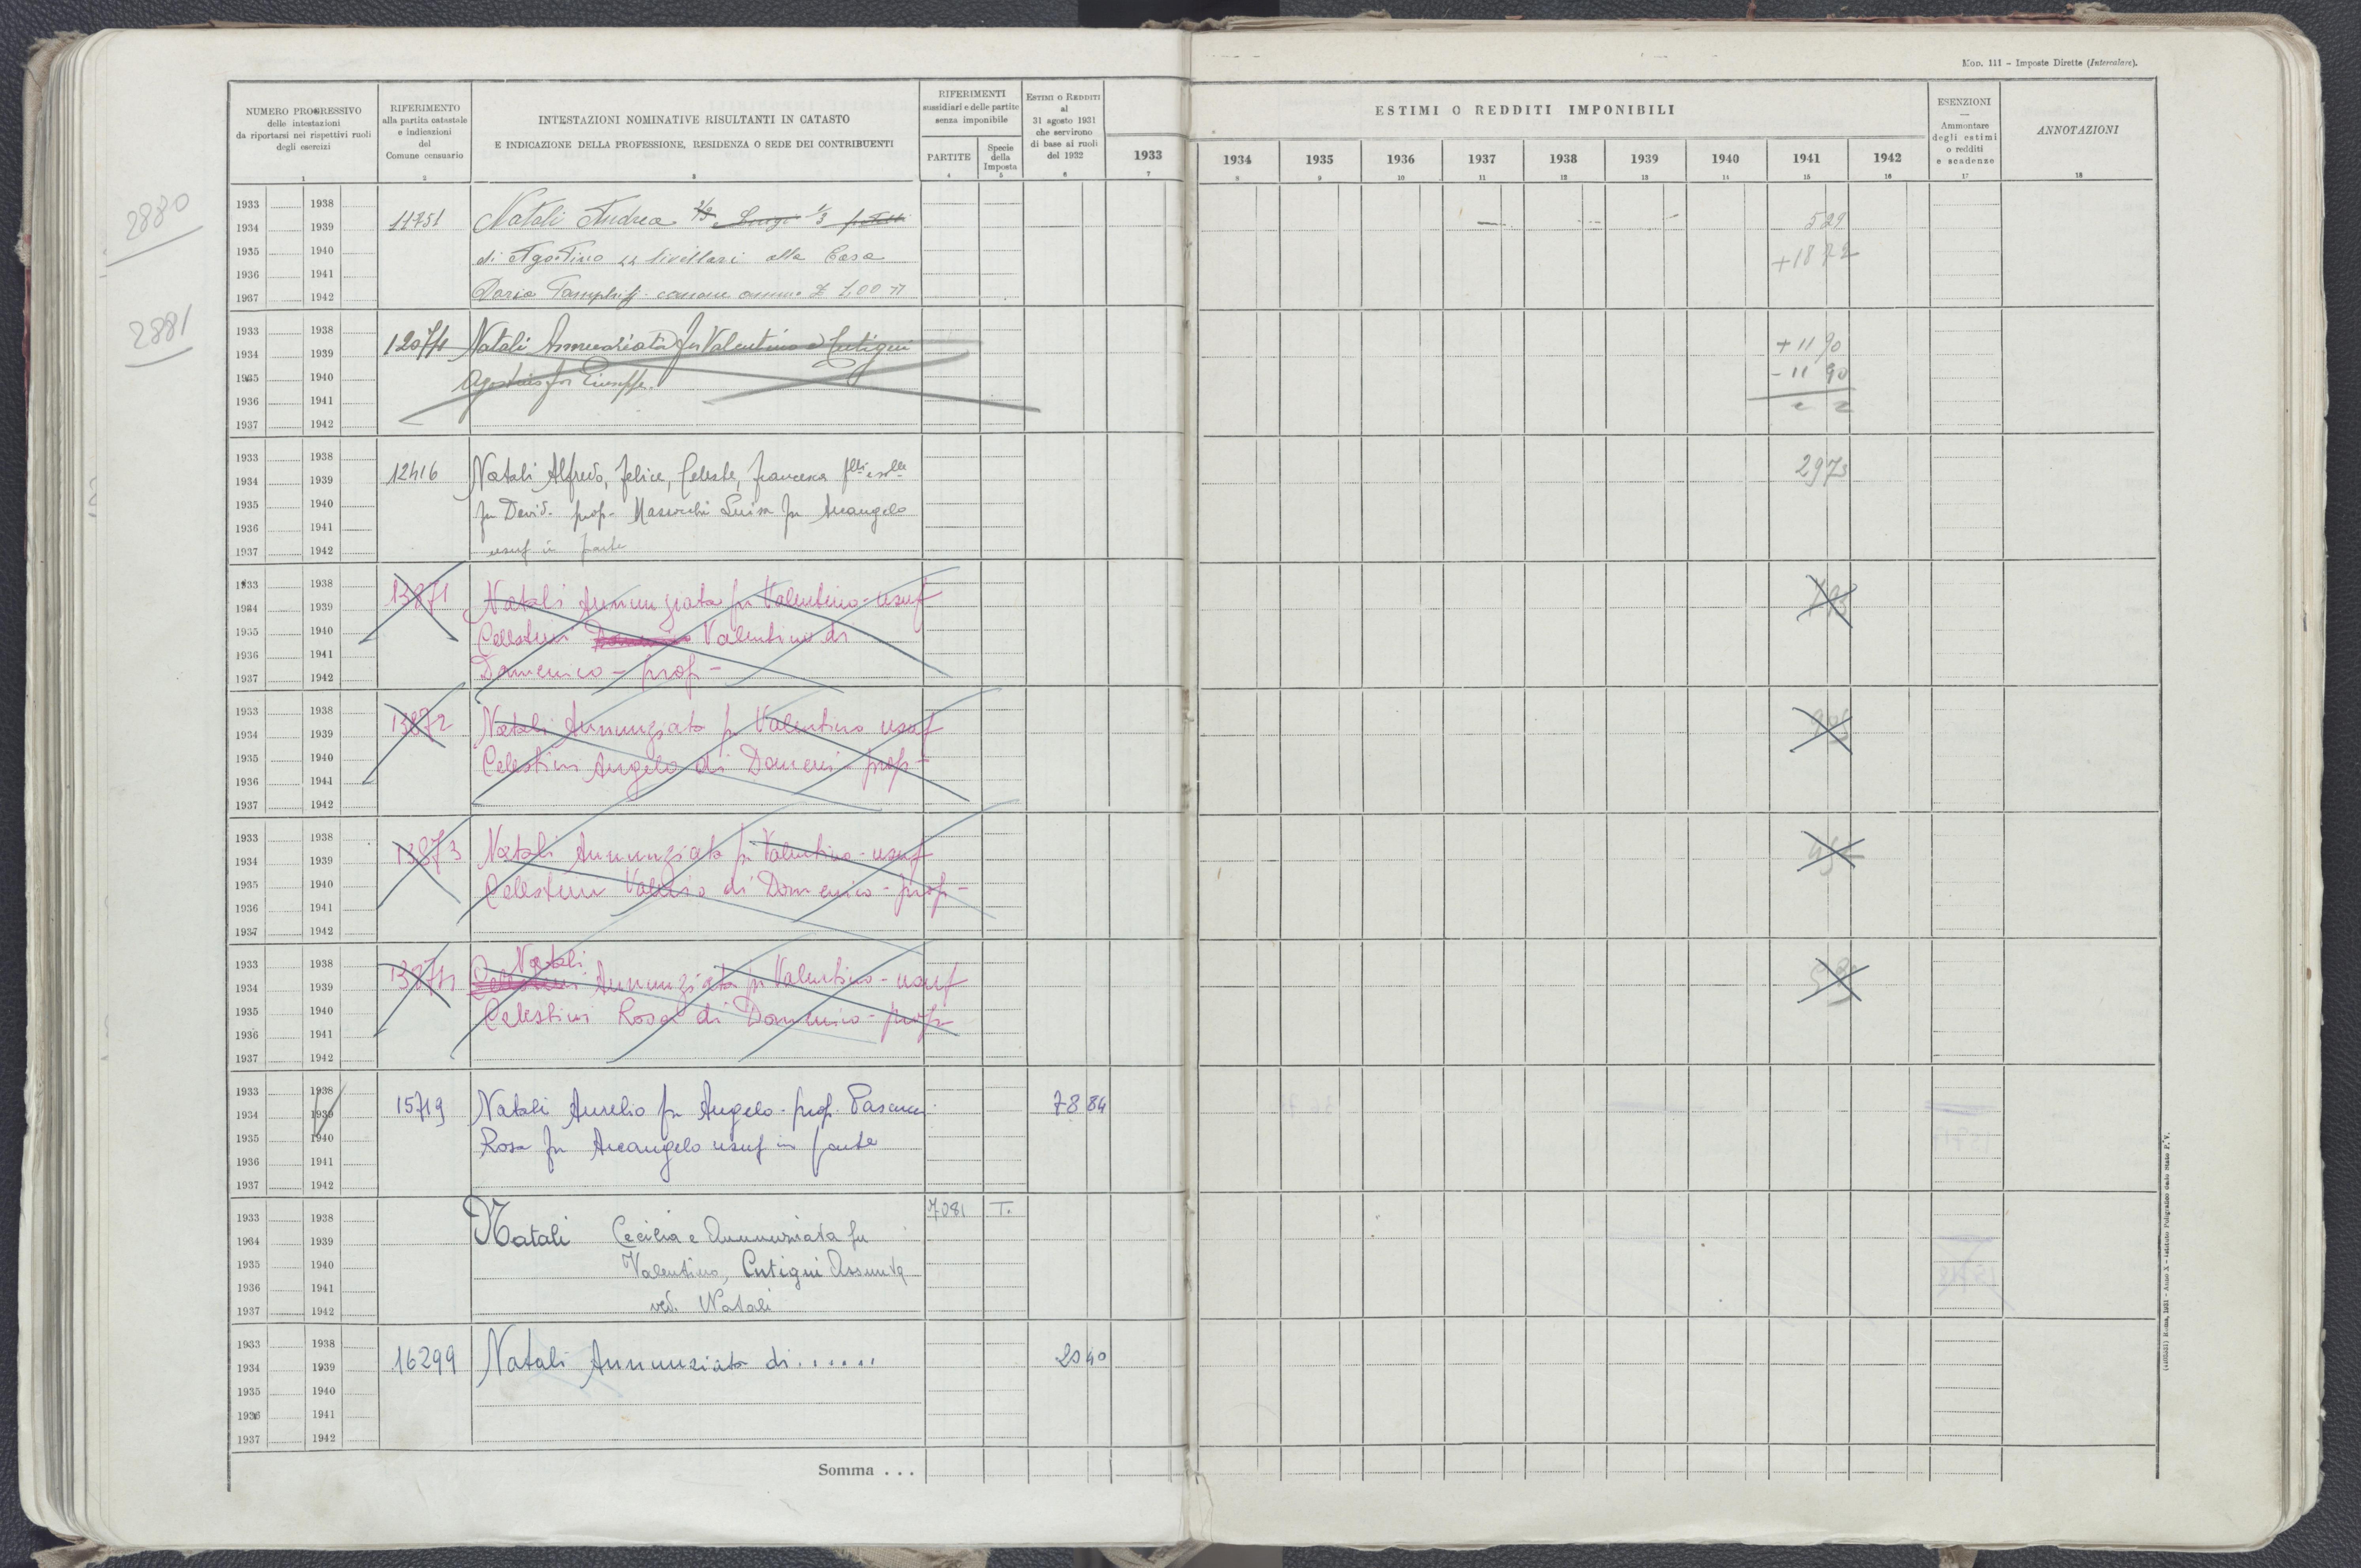 Mod. 111 - Imposte Dirette (Intercalare).
NUMERO PROGRESSIVO
delle intestazioni
da riportarsi nei rispettivi ruoli
degli esercizi
1
RIFERIMENTO
alla partita catastale
e indicazioni
del
Comune censuario
2
INTESTAZIONI NOMINATIVE RISULTANTI IN CATASTO
E INDICAZIONE DELLA PROFESSIONE, RESIDENZA O SEDE DEI CONTRIBUENTI
3
RIFERIMENTI
sussidiari e delle partite
senza imponibile
PARTITE
4
Specie
della
Imposta
5
ESTIMI O REDDITI
al
31 agosto 1931
che servirono
di base ai ruoli
del 1932
6
1933
7
ESTIMI O REDDITI IMPONIBILI
1934 1935 1936 1937 1938 1939 1940 1941 1942
8 9 10 11 12 13 14 15 16
ESENZIONI
Ammontare
degli estimi
o redditi
e scadenze
17
ANNOTAZIONI
18
2880
1933 1938
1934 1939 11751 Natali Andrea 1/3 529
1935 1940 di Agostino livellari alla Casa +1872
1936 1941
1937 1942 Doria canone annuo
2881
1933 1938
1934 1939 Natali Annunziata fu Valentino e Cutigni +1190
1935 1940 fu Giuseppe -1190
1936 1941
1937 1942
1933 1938
1934 1939 12416 Natali Alfredo, Felice, Celeste, Francesca flli e slle 2973
1935 1940 fu David. prop- Luisa fu Arcangelo
1936 1941
1937 1942 usuf in parte
1933 1938
1934 1939 13871 Natali Annunziata fu Valentino - usuf
1935 1940 Celestini Valentino di
1936 1941
1937 1942 Domenico - prop -
1933 1938
1934 1939 13872 Natali Annunziata fu Valentino usuf
1935 1940 Celestini Angelo di Domeni - prop -
1936 1941
1937 1942
1933 1938
1934 1939 13873 Natali Annunziata fu Valentino - usuf
1935 1940 Celestini di Domenico - prop -
1936 1941
1937 1942
1933 1938 Natali
1934 1939 13874 Celestini Annunziata fu Valentino - usuf
1935 1940 Celestini Rosa di Domenico - prop-
1936 1941
1937 1942
1933 1938
1934 1939 15719 Natali Aurelio fu Angelo - prop. 78 84
1935 1940 Rosa fu Arcangelo usuf in parte
1936 1941
1937 1942
1933 1938 7081 T.
1934 1939 Natali Cecilia e Annunziata fu
1935 1940 Valentino, Cutigni Assunta
1936 1941
1937 1942 ved. Natali
1933 1938
1934 1939 16299 Natali Annunziata di...... 20 40
1935 1940
1936 1941
1937 1942
Somma . . .